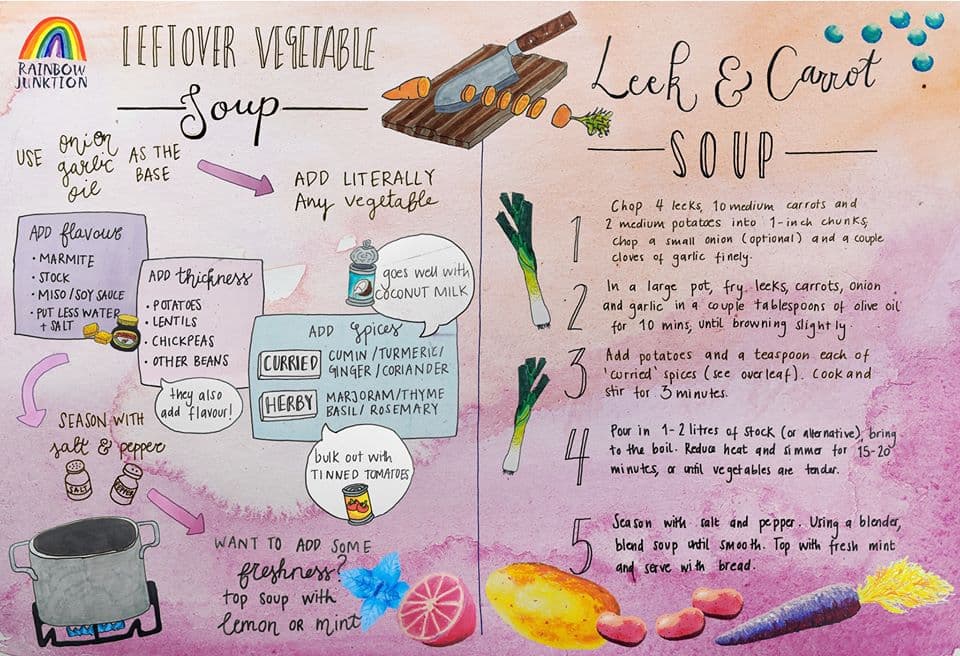 RAINBOW
JUNKTION
LEFTOVER VEGETABLE
Soup
USE onion garlic oil AS THE BASE
ADD LITERALLY
Any vegetable
ADD flavour
• MARMITE
• STOCK
• MISO/SOY SAUCE
• PUT LESS WATER
+ SALT
ADD thickness
• POTATOES
• LENTILS
• CHICKPEAS
• OTHER BEANS
they also
add flavour!
goes well with
COCONUT MILK
ADD Spices
CURRIED CUMIN / TURMERIC/
GINGER / CORIANDER
HERBY MARJORAM/THYME
BASIL/ ROSEMARY
bulk out with
TINNED TOMATOES
SEASON WITH
salt & pepper
SALT
PEPPER
WANT TO ADD SOME
freshness?
top soup with
lemon or mint
Leek & Carrot
SOUP
1 Chop 4 leeks, 10 medium carrots and
2 medium potatoes into 1-inch chunks,
chop a small onion (optional) and a couple
cloves of garlic finely.
2 In a large pot, fry leeks, carrots, onion
and garlic in a couple tablespoons of olive oil
for 10 mins, until browning slightly.
3 Add potatoes and a teaspoon each of
'curried' spices (see overleaf). Cook and
stir for 3 minutes.
4 Pour in 1-2 litres of stock (or alternative), bring
to the boil. Reduce heat and simmer for 15-20
minutes, or until vegetables are tender.
5 Season with salt and pepper. Using a blender,
blend soup until smooth. Top with fresh mint
and serve with bread.